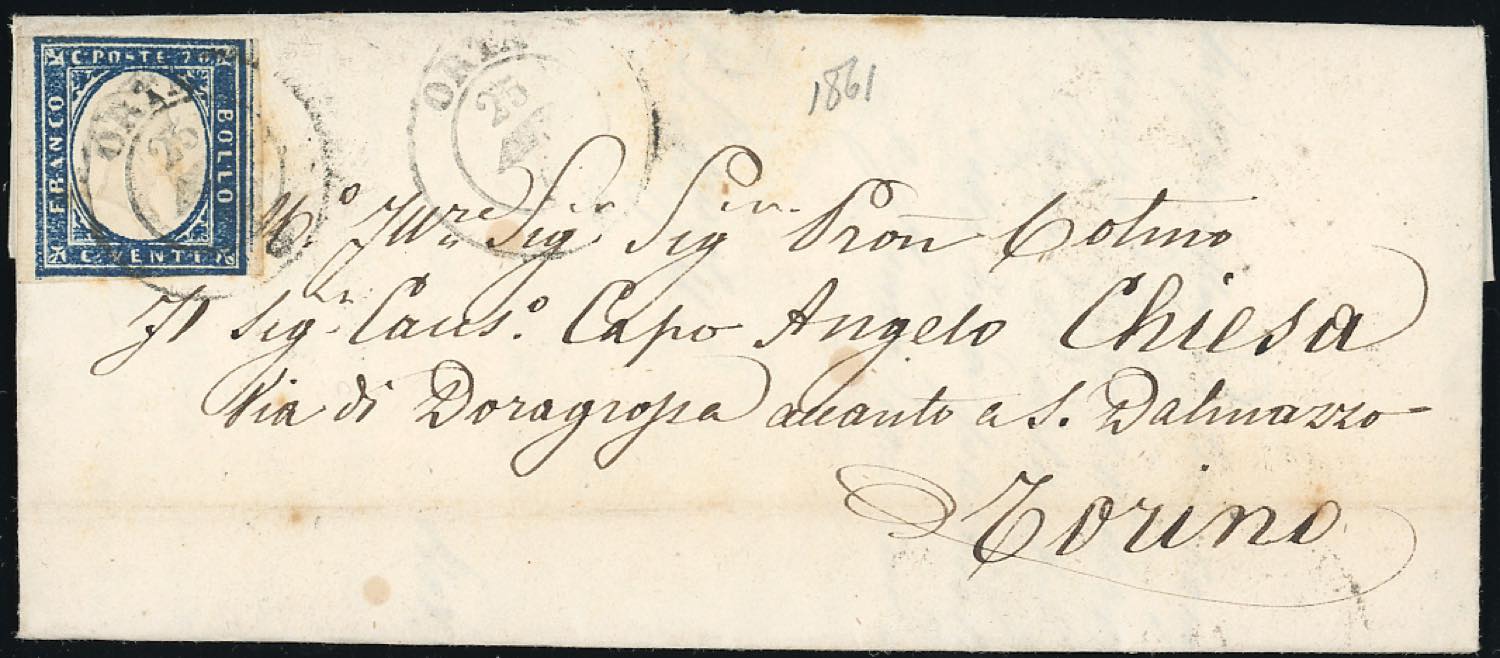 C POSTE 20
FRANCO
BOLLO
C VENTI
ORTA
25
ORTA
25
1861
Sig. Sig Pron Cotino
Il Sig.r Caus.o Capo Angelo Chiesa
Via di Doragrossa accanto a S. Dalmazzo
Torino